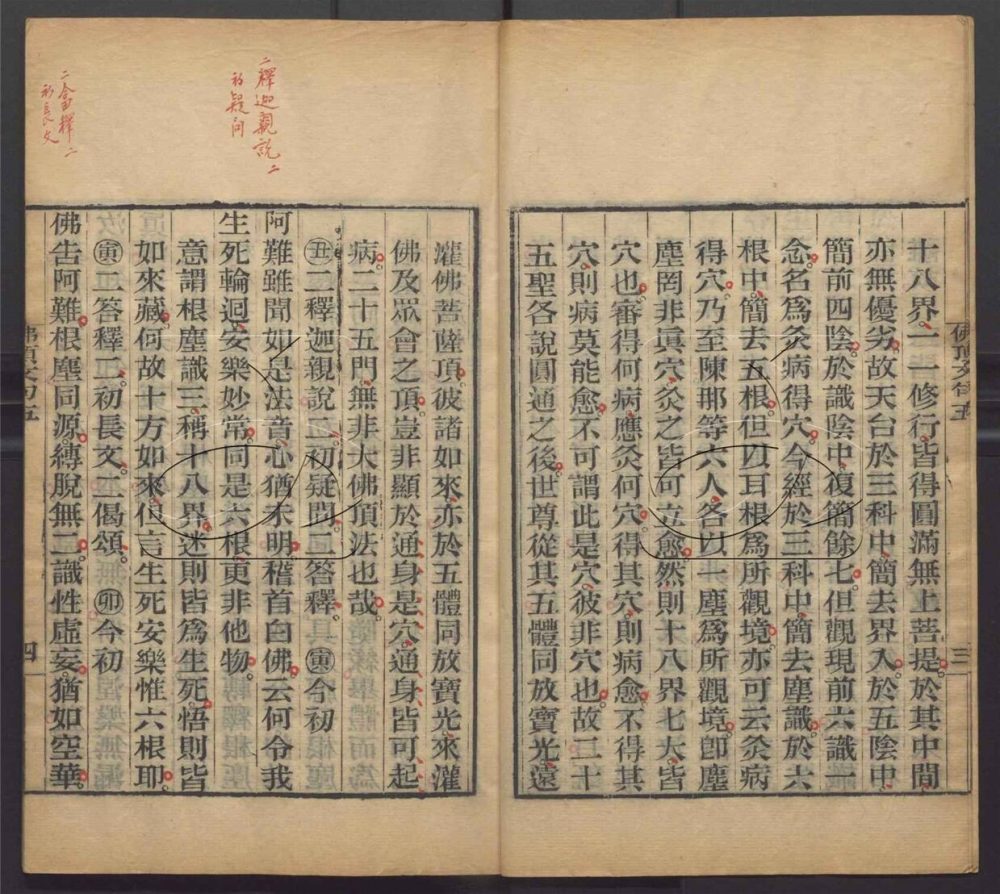 十八界一一修行皆得圓滿無上菩提於其中間
亦無優劣故天台於三科中簡去界入於五陰中
簡前四陰於識陰中復簡餘七但觀現前六識一
念名爲灸病得穴今經於三科中簡去塵識於六
根中簡去五根但以耳根爲所觀境亦可云灸病
得穴乃至陳那等六人各以一塵爲所觀境卽塵
塵罔非眞穴灸之皆可立愈然則十八界七大皆
穴也審得何病應灸何穴得其穴則病愈不得其
穴則病莫能愈不可謂此是穴彼非穴也故二十
五聖各說圓通之後世尊從其五體同放寶光遠
佛頂文句五
三
灌佛菩薩頂彼諸如來亦於五體同放寶光來灌
佛及眾會之頂豈非顯於通身是穴通身皆可起
病二十五門無非大佛頂法也哉
丑二釋迦親說二初疑問二答釋寅今初
阿難雖聞如是法音心猶未明稽首白佛云何令我
生死輪迴安樂妙常同是六根更非他物
意謂根塵識三稱十八界迷則皆爲生死悟則皆
如來藏何故十方如來但言生死安樂惟六根耶
寅二答釋二初長文二偈頌卯今初
佛告阿難根塵同源縛脫無二識性虛妄猶如空華
佛頂文句五
四
二釋迦親說二
初疑問
二答釋二
初長文